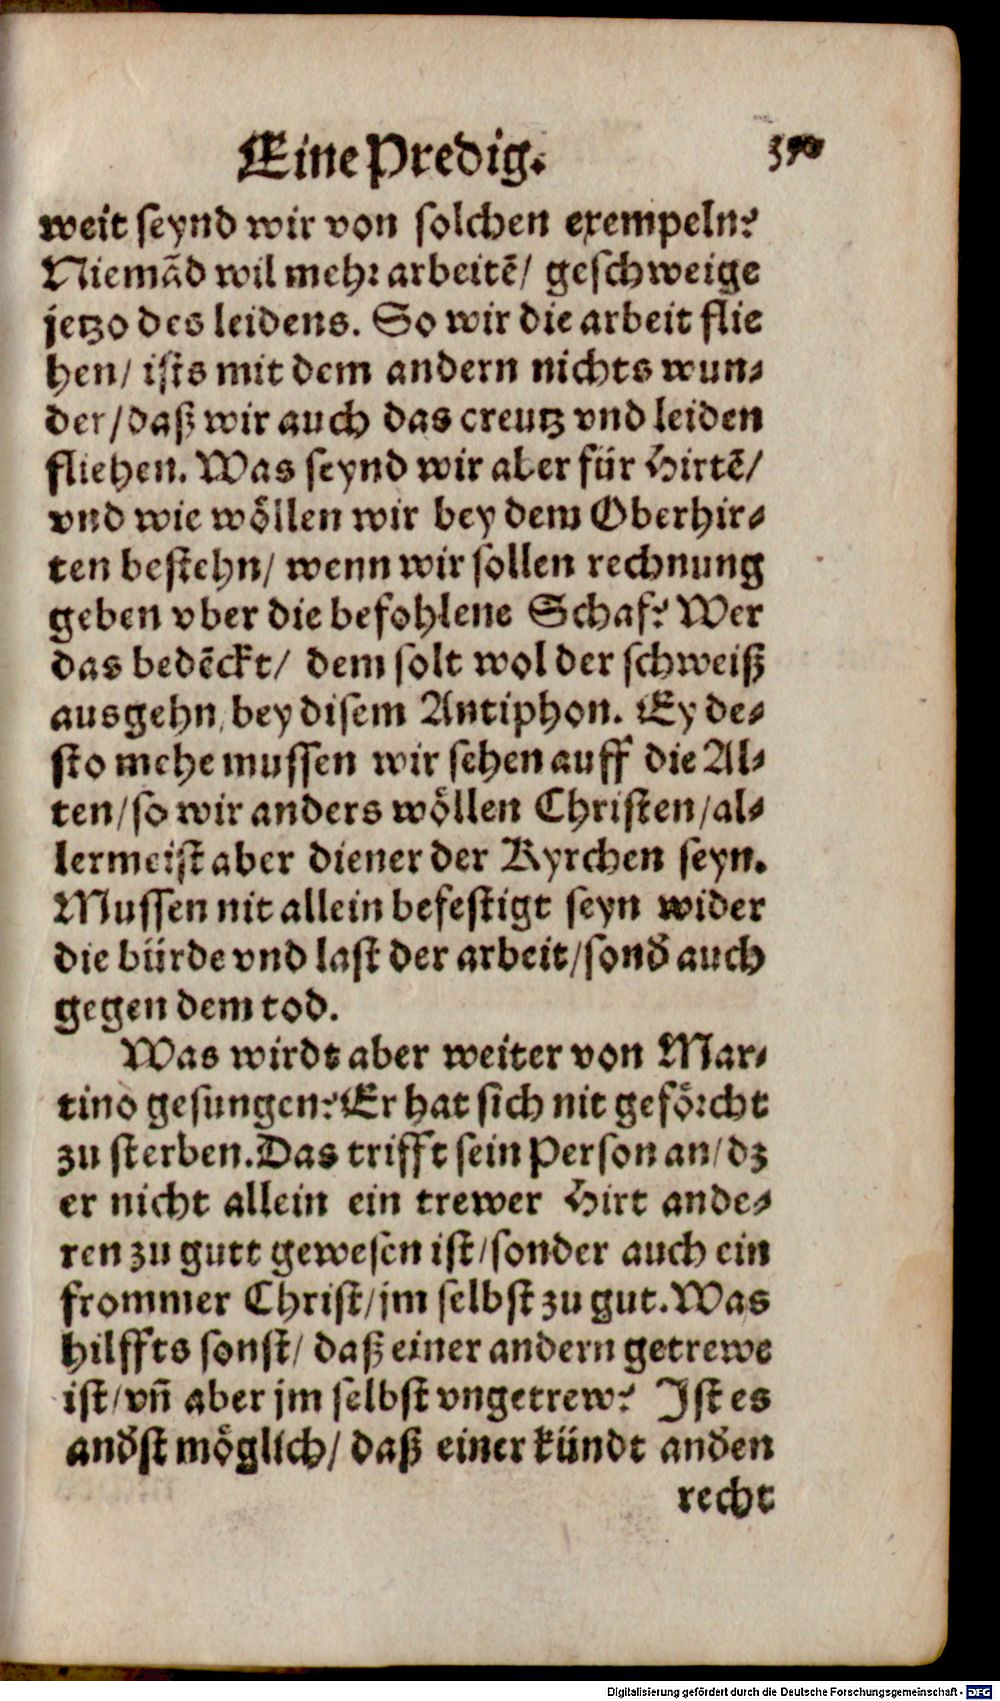 Eine Predig.
weit seynd wir von solchen exempeln?
Niemãd wil mehr arbeitẽ/ geschweige
jetzo des leidens. So wir die arbeit flie
hen/ ists mit dem andern nichts wun-
der/daß wir auch das creutz vnd leiden
fliehen. Was seynd wir aber für Hirtẽ/
vnd wie wöllen wir bey dem Oberhir-
ten bestehn/ wenn wir sollen rechnung
geben vber die befohlene Schaf? Wer
das bedẽckt/ dem solt wol der schweiß
ausgehn, bey disem Antiphon. Ey de-
sto mehe mussen wir sehen auff die Al-
ten/so wir anders wöllen Christen/al-
lermeist aber diener der Kyrchen seyn.
Mussen nit allein befestigt seyn wider
die bürde vnd last der arbeit/sond̃ auch
gegen dem tod.
Was wirdt aber weiter von Mar-
tino gesungen? Er hat sich nit geförcht
zu sterben. Das trifft sein Person an/dz
er nicht allein ein trewer Hirt ande-
ren zu gutt gewesen ist/sonder auch ein
frommer Christ/jm selbst zu gut. Was
hilffts sonst/ daß einer andern getrewe
ist/vñ aber jm selbst vngetrew? Ist es
and̃st möglich/ daß einer kündt and̃en
recht
Digitalisierung gefördert durch die Deutsche Forschungsgemeinschaft - DFG